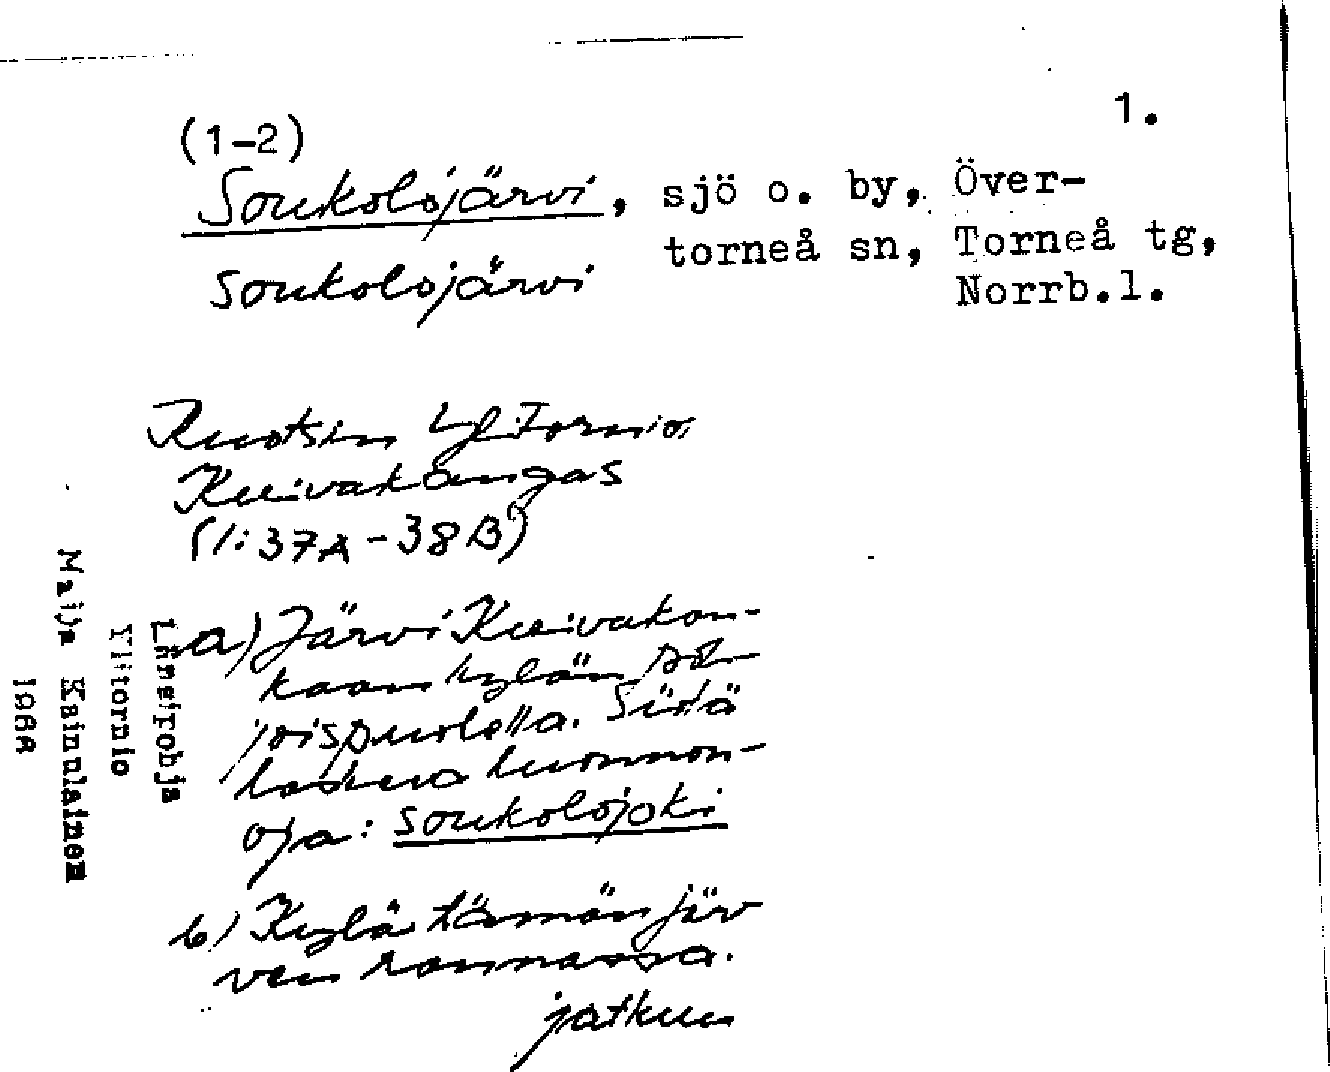 1.
(1-2)
Soukolojärvi, sjö o. by, Över-
torneå sn, Torneå tg,
Norrb.l.
Soukolojärvi
Ruotsin Yl.Tornio
Kuivakangas
(1:37A-38B)
a) Järvi Kuivakan-
kaan kylän poh-
joispuolella. Siitä
laskeva luonnon-
oja: Soukolojoki
b) Kylä tämän jär
ven rannassa.
jatkuu
Länsipohja
Ylitornio
Maija Kainulainen